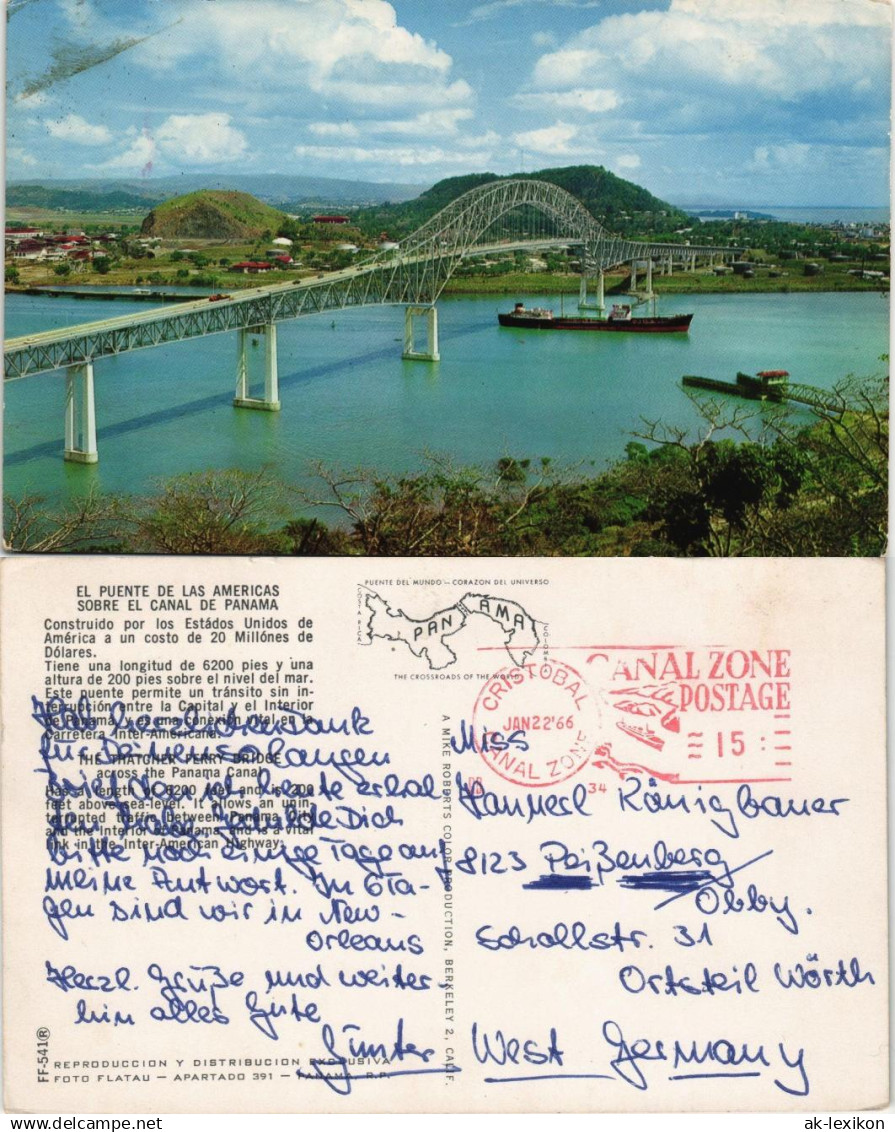 EL PUENTE DE LAS AMERICAS
SOBRE EL CANAL DE PANAMA
Construido por los Estádos Unidos de
América a un costo de 20 Millónes de
Dólares.
Tiene una longitud de 6200 pies y una
altura de 200 pies sobre el nivel del mar.
Este puente permite un tránsito sin in-
terrupción entre la Capital y el Interior
de Panamá, y es una conexión vital en la
Carretera Inter-Americana.
THE THATCHER FERRY BRIDGE
across the Panama Canal
Has a length of 6200 feet and is 200
feet above sea-level. It allows an unin-
terrupted traffic between Panama City
and the Interior of Panama, and is a vital
link in the Inter-American Highway.
Dank
für Deinen so langen
Brief, den ich heute erhal
ten habe. Gedulde Dich
bitte noch einige Tage auf
meine Antwort. In 6 Ta-
gen sind wir in New-
Orleans
Herzl. Grüße und weiter-
hin alles Gute
Günter
FF-541 ®
REPRODUCCION Y DISTRIBUCION EXCLUSIVA
FOTO FLATAU – APARTADO 391 – PANAMA, R.P.
PUENTE DEL MUNDO – CORAZON DEL UNIVERSO
COSTA RICA
PANAMA
COLOMBIA
THE CROSSROADS OF THE WORLD
A MIKE ROBERTS COLOR PRODUCTION, BERKELEY 2, CALIF.
CRISTOBAL
JAN22'66
CANAL ZONE
CANAL ZONE
POSTAGE
15
34
Miss
Hannerl Königbauer
8123 Peißenberg
Obby.
Schollstr. 31
Ortsteil Wörth
West Germany
ak-lexikon